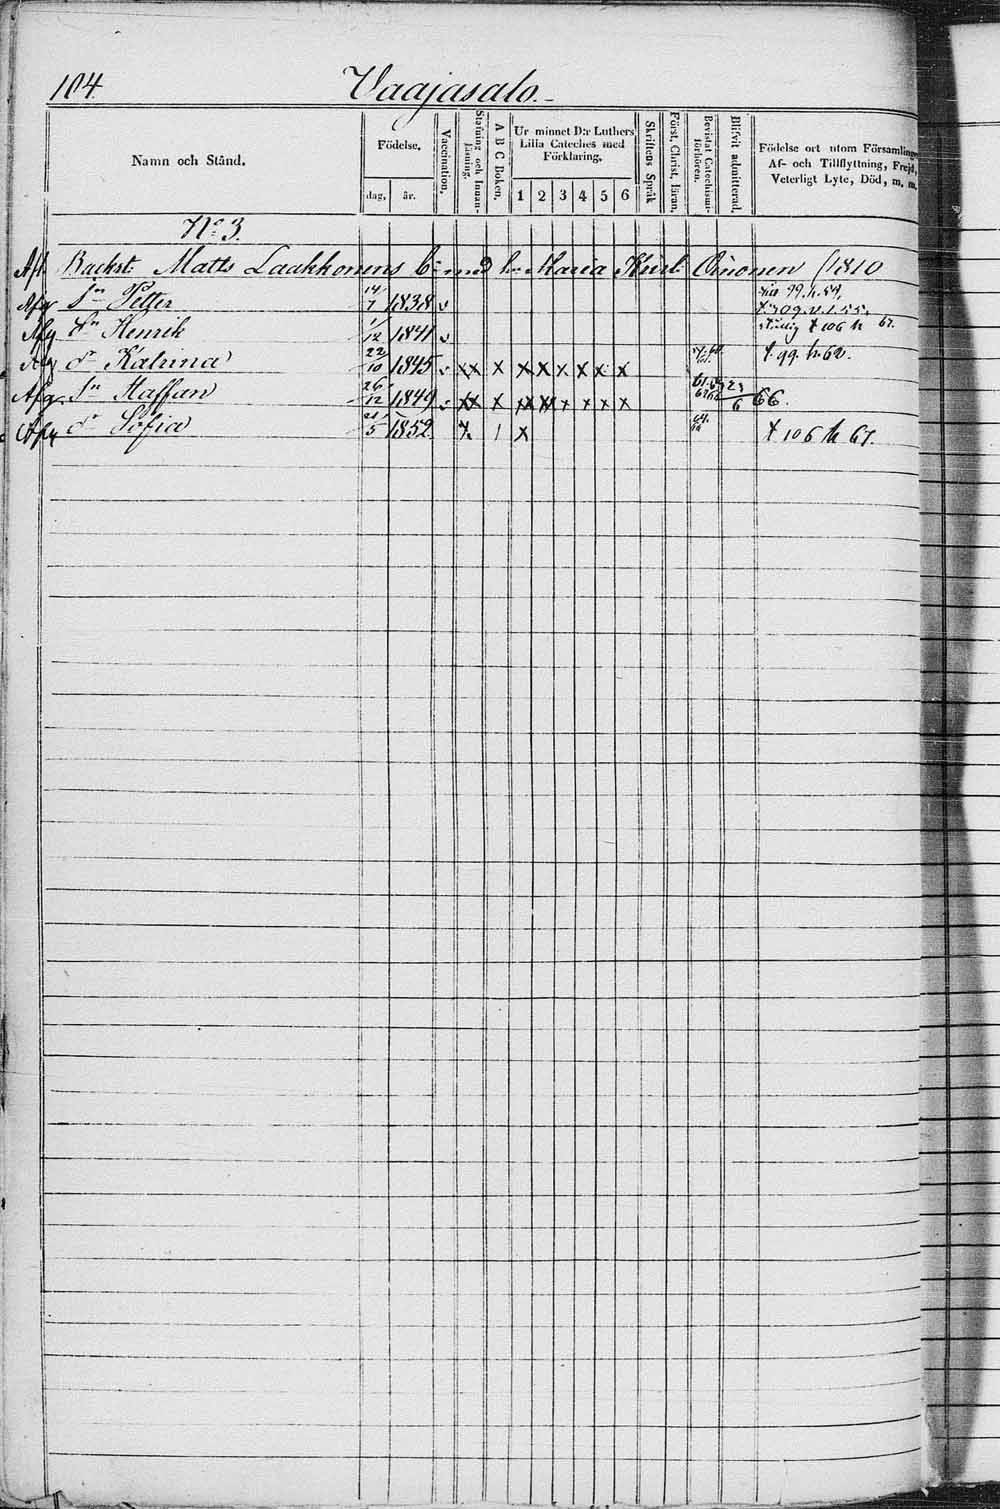 104. Vaajasalo.
Namn och Stånd.
Födelse.
dag, år.
Vaccination,
Stafning och Innanläsning,
A B C Boken,
Ur minnet D:r Luthers Lilla Cateches med Förklaring,
1 2 3 4 5 6
Skriftens Språk
Först, Christ, läran,
Bevistat Catechismiförhören.
Blifvit admitterad,
Födelse ort utom Församlingen
Af- och Tillflyttning, Frejd,
Veterligt Lyte, Död, m. m.
No 3.
Backst. Matts Laakkonens b: med h: Maria Oinonen (1810
Afg Sn Petter 14/7 1838 v
Afg Sn Henrik 1/12 1841 v † 106 h 67.
Afg dr Katrina 22/10 1845 v xx x x x x x x x † 99 h 62.
Afg Sn Staffan 26/12 1849 v xx x xx xx x x x x 23/6 66.
Afg dr Sofia 21/5 1852 x x † 106 h 67.